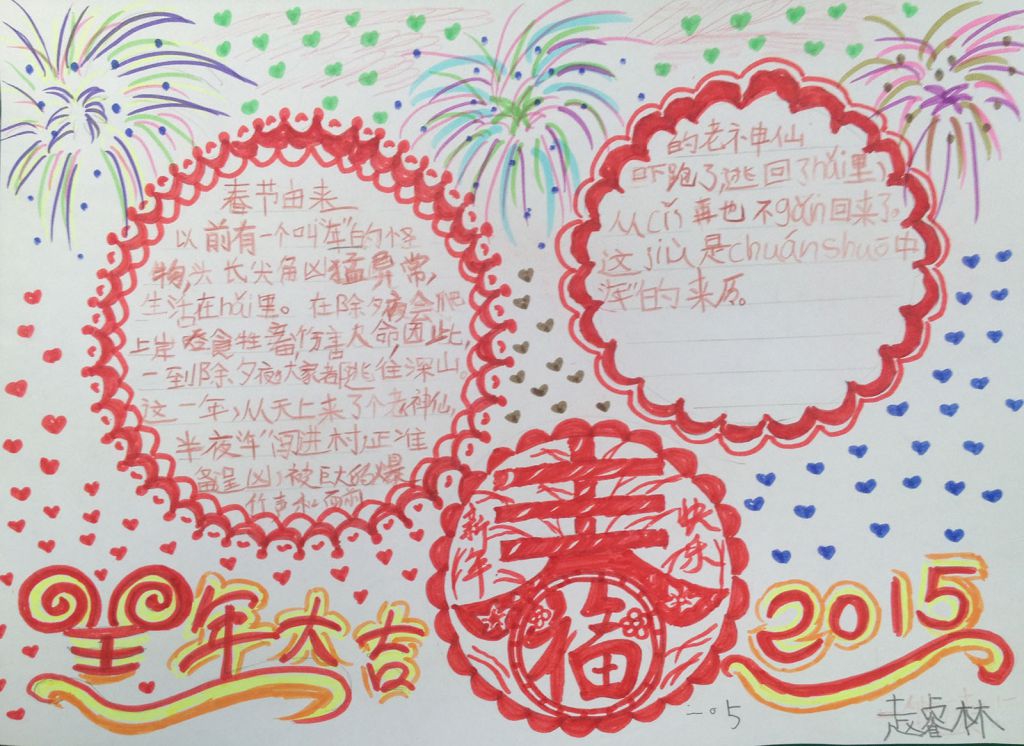 春节由来
以前有一个叫"年"的怪
物,头长尖角凶猛异常,
生活在hǎi里。在除夕夜会爬
上岸吞食牲畜,伤害人命,因此,
一到除夕夜,大家都逃往深山。
这一年,从天上来了个老神仙,
半夜"年"闯进村,正准
备呈凶,被巨大的爆
竹声和
的老神仙
吓跑了,逃回了hǎi里,
从cǐ再也不gǎn回来了。
这jiù是chuánshuō中
"年"的来原。
春
新年
快乐
福
羊年大吉
2015
二〇5
赵睿林